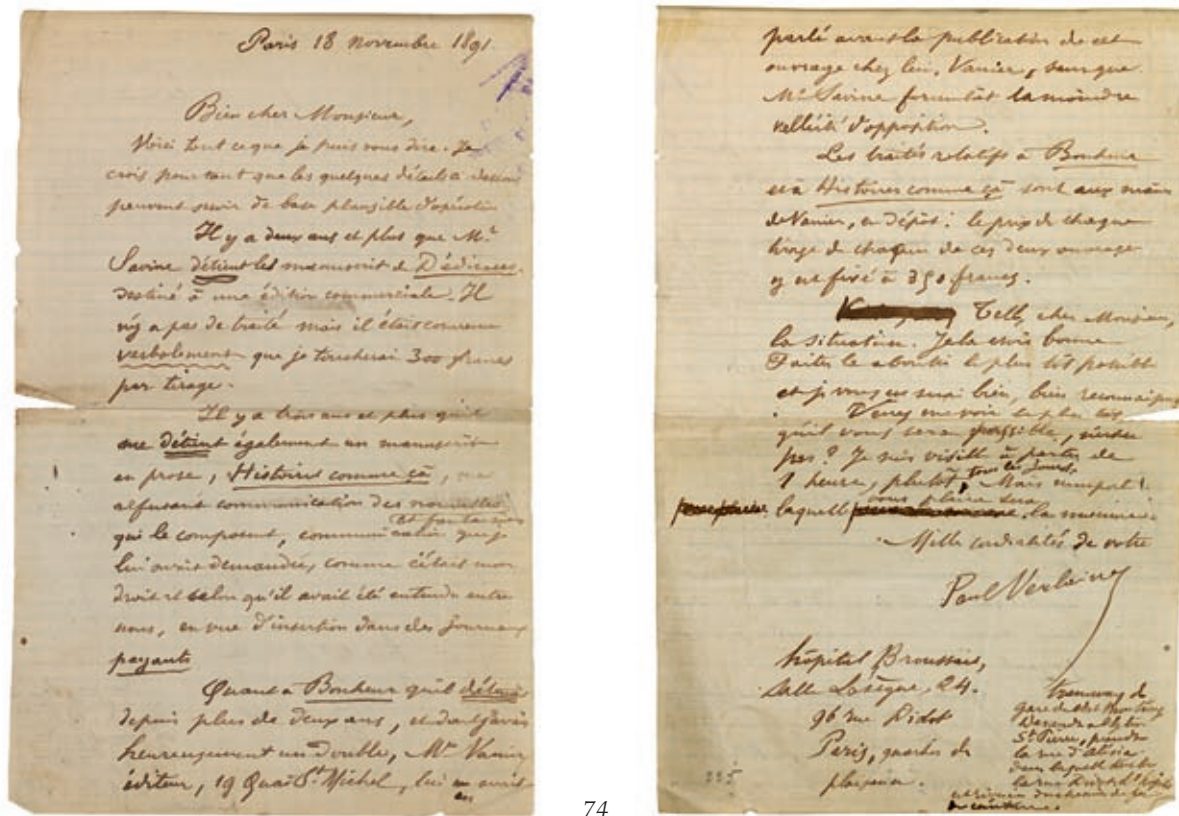 Paris 18 novembre 1891.
Bien cher Monsieur,
Voici tout ce que je puis vous dire. Je
crois pourtant que les quelques détails ci dessous
peuvent servir de base plausible d'opération
Il y a deux ans et plus que Mr
Savine détient les manuscrit de Dédicaces,
destiné à une édition commerciale. Il
n'y a pas de traité mais il était convenu
verbalement que je toucherai 300 francs
par tirage.
Il y a trois ans et plus qu'il
me détient également un manuscrit
en prose, Histoires comme ça, me
refusant communication des nouvelles
et fantaisies
qui le composent, communication que je
lui avais demandée, comme c'était mon
droit et selon qu'il avait été entendu entre
nous, en vue d'insertion dans des journaux
payants
Quant à Bonheur qu'il détient
depuis plus de deux ans, et dont j'avais
heureusement un double, Mr Vanier
éditeur, 19 Quai St Michel, lui en avait
parlé avant la publication de cet
ouvrage chez lui, Vanier, sans que
Mr Savine formulât la moindre
velléité d'opposition.
Les traités relatifs à Bonheur
et à Histoires comme ça sont aux mains
de Vanier, en dépôt : le prix de chaque
tirage de chacun de ces deux ouvrages
y est fixé à 350 francs.
Telle, cher Monsieur,
la situation. Je la crois bonne
Faites la aboutir le plus tôt possible
et je vous en serai bien, bien reconnaissant
Venez me voir le plus tôt
qu'il vous sera possible, n'est-ce
pas ? Je suis visible à partir de
1 heure, plutôt, tous les jours. Mais n'importe
laquelle vous plaira sera la mienne.
Mille cordialités de votre
Paul Verlaine
hôpital Broussais,
Salle Lasègue, 24.
96 rue Didot
Paris, quartier de
plaisance.
tramway de
gare de l'Est Montrouge
Descendre à l'église
St Pierre, prendre
la rue d'Alésia
dans laquelle tombe
la rue Didot
335
74